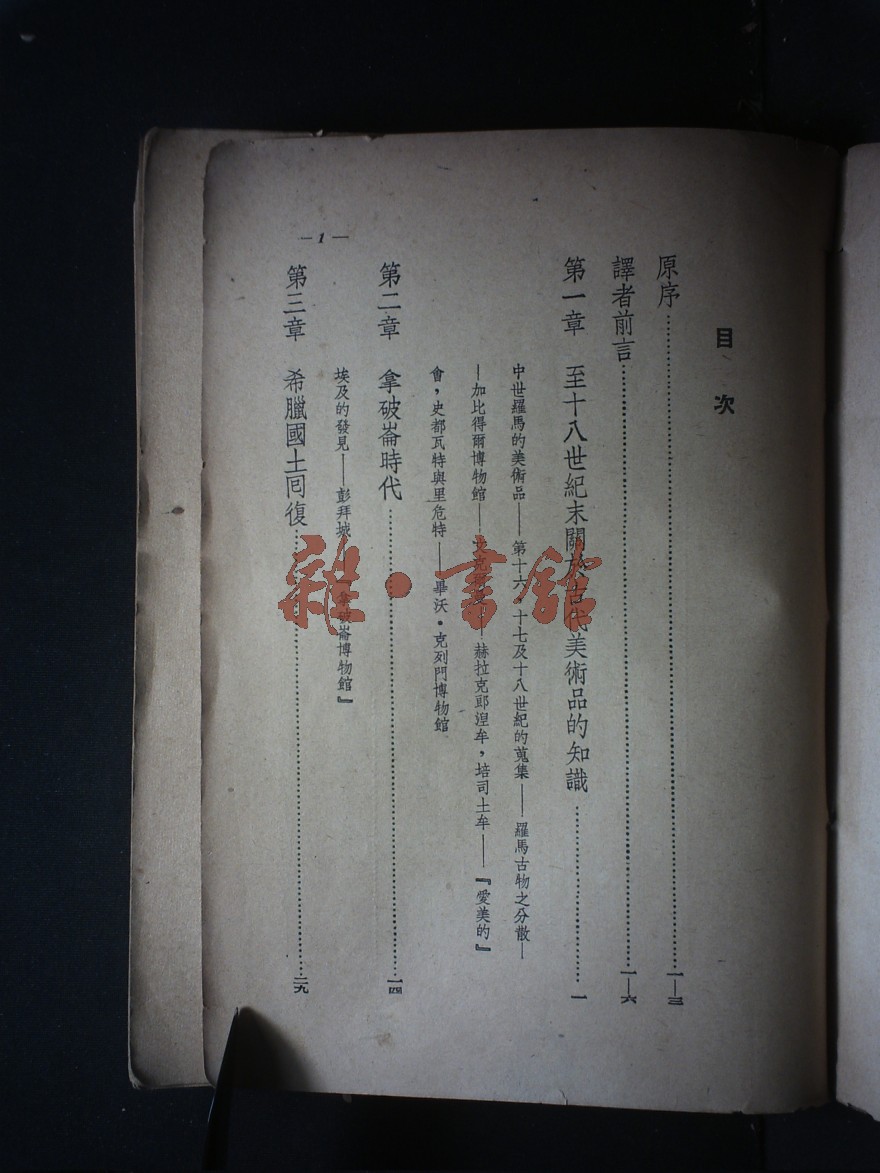 目次
原序 一—三
譯者前言 一—六
第一章 至十八世紀末關於古代美術品的知識 一
中世羅馬的美術品——第十六，十七及十八世紀的蒐集——羅馬古物之分散—
—加比得爾博物館————赫拉克郎涅牟，培司土牟——『愛美的』
會，史都瓦特與里危特——畢沃·克列門博物館
第二章 拿破崙時代 一四
埃及的發見——彭拜城——『拿破崙博物館』
第三章 希臘國土囘復 二九
—1—
雜·書館